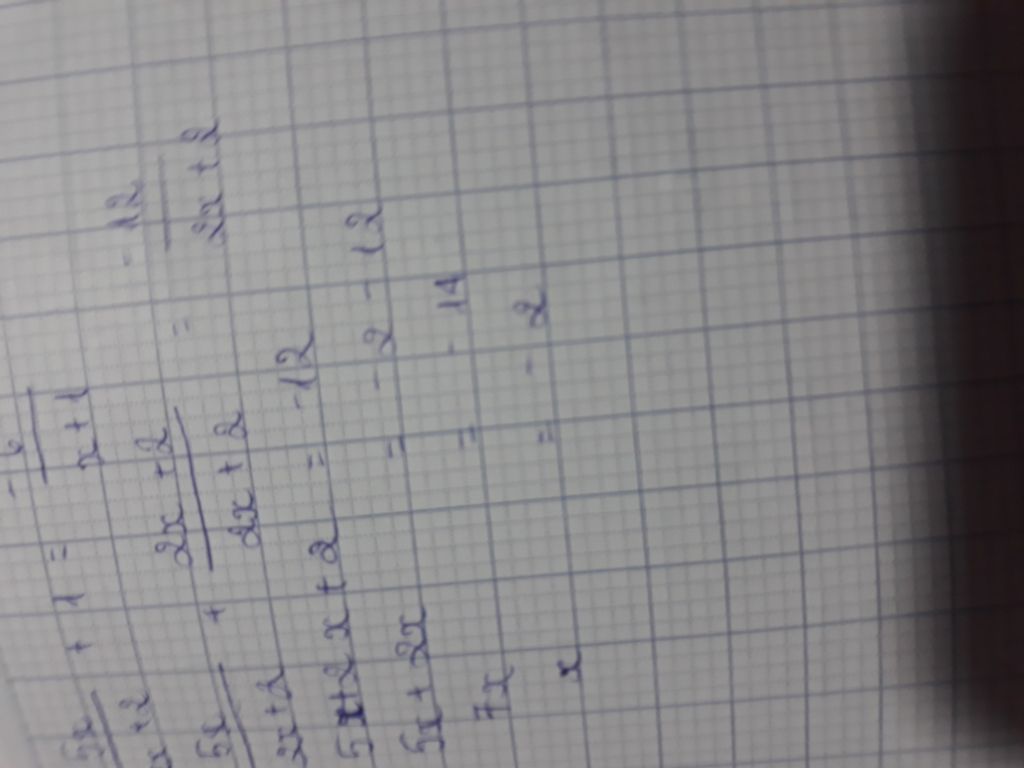 5x/ x+2 + 1 = -6/x+1
5x/2x+2 + 2x+2/2x+2 = -12/2x+2
5x+2x+2 = -12
5x+2x = -2-12
7x = -14
x = -2